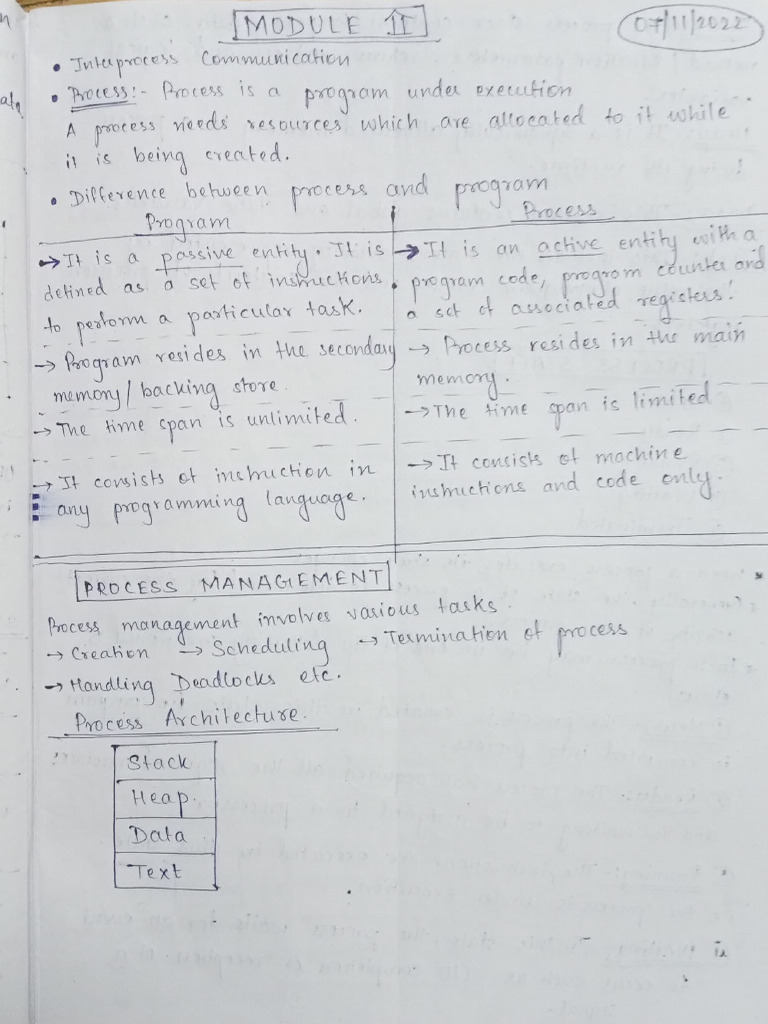 MODULE II
07/11/2022
• Interprocess Communication
• Process:- Process is a program under execution
A process needs resources which are allocated to it while
it is being created.
• Difference between process and program
Program
Process
→ It is a passive entity. It is
defined as a set of instructions.
to perform a particular task.
→ Program resides in the secondary
memory/backing store.
→ The time span is unlimited.
→ It consists of instruction in
any programming language.
→ It is an active entity with a
program code, program counter and
a set of associated registers.
→ Process resides in the main
memory.
→ The time span is limited
→ It consists of machine
instructions and code only.
PROCESS MANAGEMENT
Process management involves various tasks.
→ Creation → Scheduling → Termination of process
→ Handling Deadlocks etc.
Process Architecture.
Stack
Heap.
Data
Text